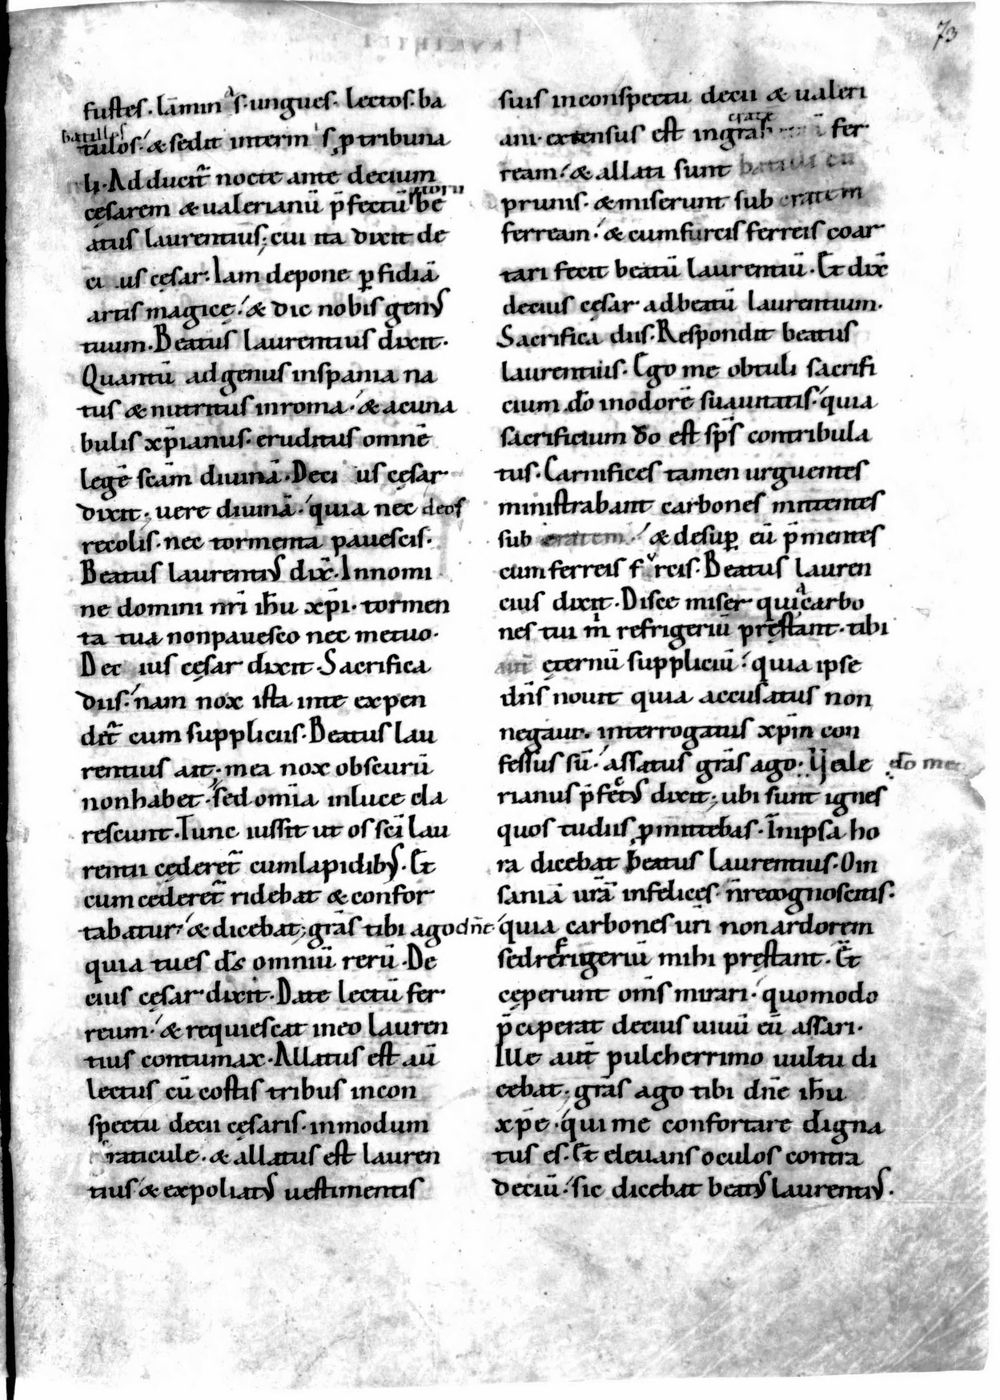 73
fustes · lāminas · ungues · lectos · ba
batillos
tulos · & sedit interim s p tribuna
li · Adducit̄ nocte ante decium
cęsarem & ualerianū p̄fectū be
atus laurentius; cui ita dixit de
ci us cęsar · Iam depone ꝑfidiā
artis magicę · & dic nobis gen᾽
tuum · Beatus laurentius dixit ·
Quantū ad genus inspania na
tus & nutritus in roma · & a cuna
bulis xp̄ianus · eruditus omnē
legē scām diuinā · Deci us cęsar
dixit · uere diuinā · quia nec deos
recolis · nec tormenta pauescis ·
Beatus laurenti᾽ dix̄ · In nomi
ne domini nr̄i ih̄u xp̄i · tormen
ta tua non pauesco nec metuo ·
Dec ius cęsar dixit · Sacrifica
diis · nam nox ista in te expen
det̄ cum suppliciis · Beatus lau
rentius ait; mea nox obscurū
non habet · sed omīa in luce cla
rescunt · Tunc iussit ut os sc̄i lau
rentii cęderet̄ cum lapidib᾽ · Et
cum cederet̄ ridebat & confor
tabatur · & dicebat; grās tibi ago dn̄e
quia tu es d̄s omniū rerū · De
cius cęsar dixit · Date lectū fer
reum · & requiescat in eo lauren
tius contumax · Allatus est aū
lectus cū costis tribus in con
spectu decii cęsaris · in modum
raticule · & allatus est lauren
tius · & expoliat᾽ uestimentis
suis in conspectu decii & ualeri
crate
ani · extensus est in fer
ream · & allati sunt
prunis · & miserunt sub cratem
ferream · & cum furcis ferreis coar
tari fecit beatū laurentiū · Et dix̄
decius cęsar ad beatū laurentium ·
Sacrifica diis · Respondit beatus
laurentius · Ego me obtuli sacrifi
cium dō in odorē suauitatis · quia
sacrificium dō est sp̄s contribula
tus · Carnifices tamen urguentes
ministrabant carbones mittentes
sub cratem · & desuꝑ eū p̄mentes
cum ferreis furcis · Beatus lauren
cius dixit · Disce miser quia carbo
nes tui m̄ refrigeriū pręstant · tibi
aut̄ ęternū suppliciū · quia ipse
dn̄s nouit quia accusatus non
negaui · interrogatus xp̄m con
fessus sū · assatus grās ago · Vale do me
rianus p̄fect᾽ dixit; ubi sunt ignes
quos tu diis ꝓmittebas · In ipsa ho
ra dicebat beatus laurentius · O in
saniā urā infelices · n̄ recognoscitis ·
quia carbones uri non ardorem
sed refrigeriū mihi pręstant · Et̄
cęperunt om̄s mirari · quomodo
p̄ceperat decius uiuū eū assari ·
Ille aut̄ pulcherrimo uultu di
cebat; grās ago tibi dn̄e ih̄u
xp̄e · qui me confortare digna
tus es · Et eleuans oculos contra
deciū · sic dicebat beat᾽ laurenti᾽ ·